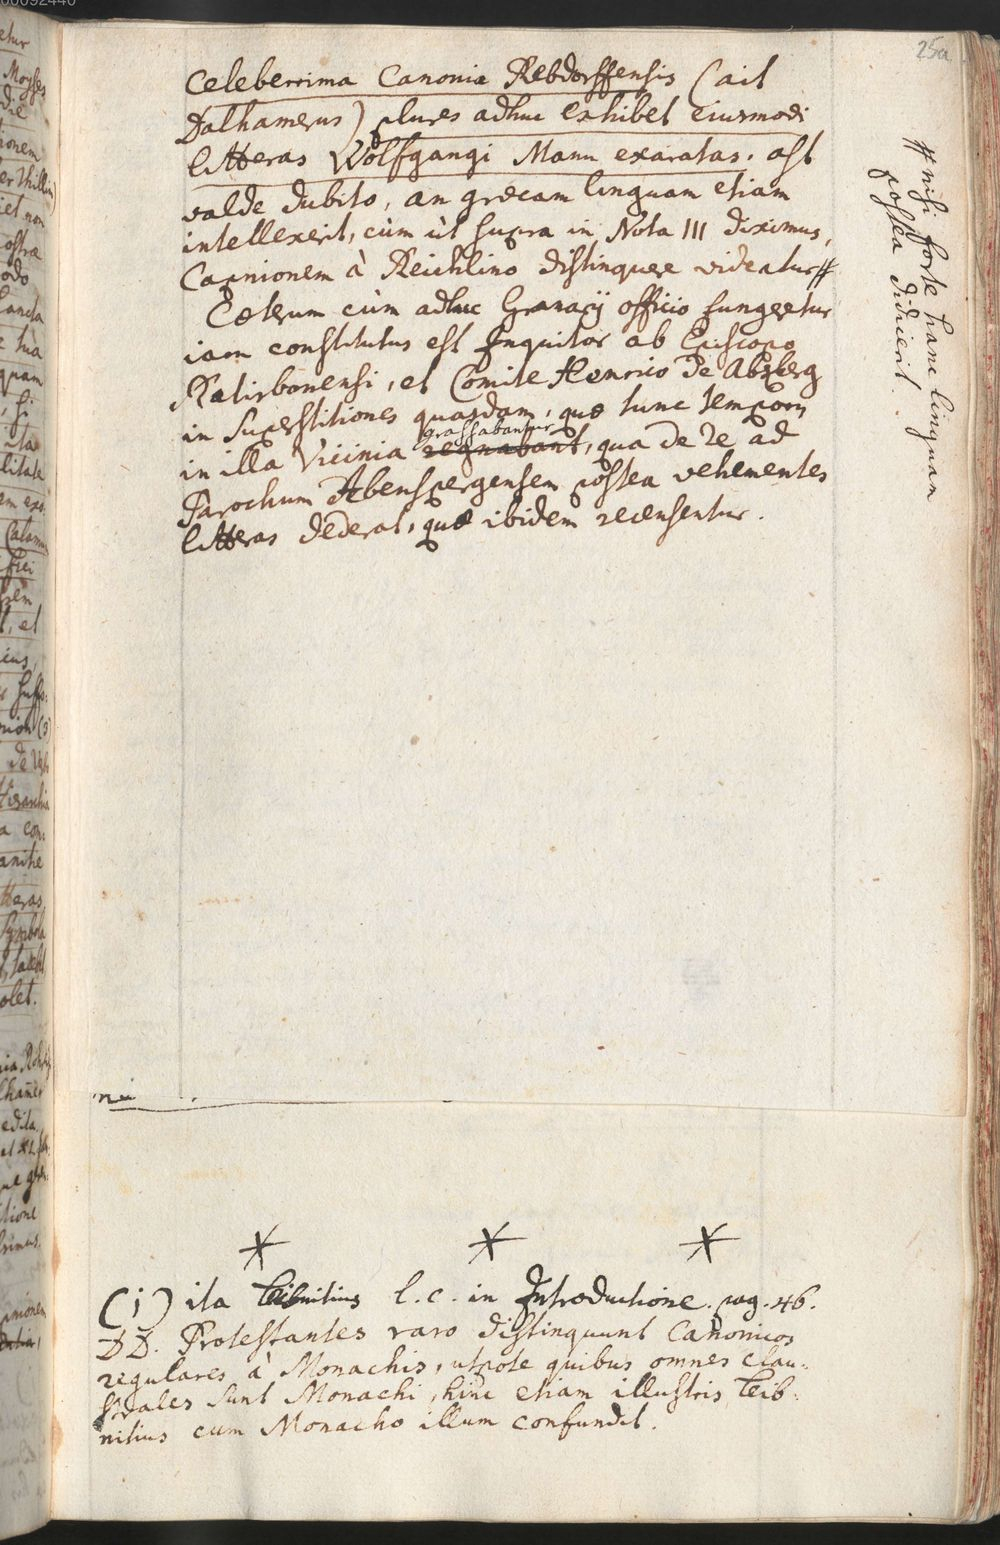 25a
Celeberrima Canonia Rebdorffensis (ait
Dalhamerus) plures adhuc exhibet eiusmodi
litteras Wolfgangi Mann exaratas. ast
valde dubito, an græcam linguam etiam
intellexerit, cùm ùt supra in Nota III diximus,
Capnionem à Reichlino distinguere videatur #
Cæterum cùm adhuc Granarij officio fungeretur
iam constitutus est Inquitor ab Episcopo
Ratisbonensi, et Comite Henrico De Absberg
in Superstitiones quasdam, quæ tunc temporis
grassabantur
in illa Vicinia regnabant, qua de re ad
Parochum Abenspergensem postea vehementes
litteras dederat, quæ ibidem recensentur.
# nisi forte hanc linguam
postea didicerit.
(i) ita Leibnitius l.c. in Introductione. pag. 46.
DD. Protestantes raro distinquunt Canonicos
regulares à Monachis, utpote quibus omnes clau-
strales sunt Monachi, hinc etiam illustris Leib-
nitius cum Monacho illum confundit.